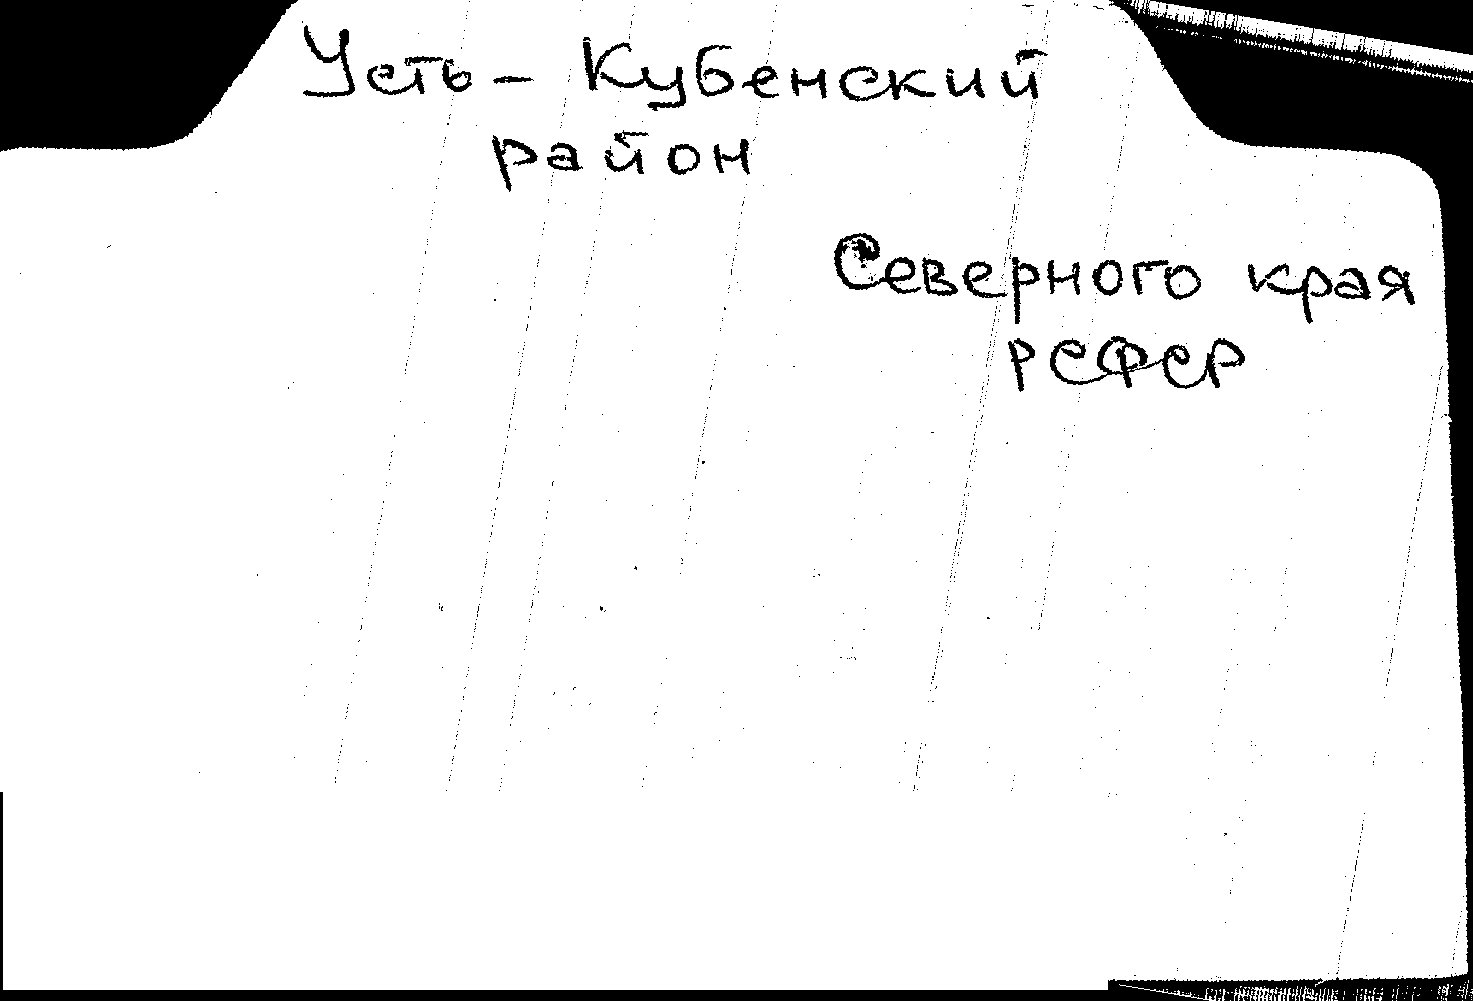 Усть - Кубенский
район
Северного края
РСФСР